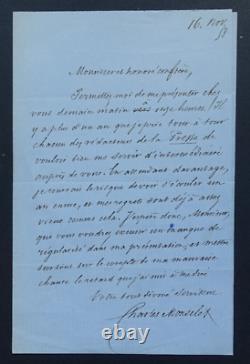 16. Nov
57
Monsieur et honoré confrère,
Permettez-moi de me présenter chez
vous demain matin vers onze heures. Il
y a plus d'un an que je prie tour à tour
chacun des rédacteurs de la Presse de
vouloir bien me servir d'intermédiaire
auprès de vous. En attendant davantage,
je courrais le risque de voir s'écouler un
an encore, et mes regrets sont déjà assez
vieux comme cela. J'espère donc, Monsieur,
que vous voudrez excuser un manque de
régularité dans ma présentation, et mettre
surtout sur le compte de ma mauvaise
chance le retard que j'ai mis à
Votre tout dévoué serviteur
Charles Monselet